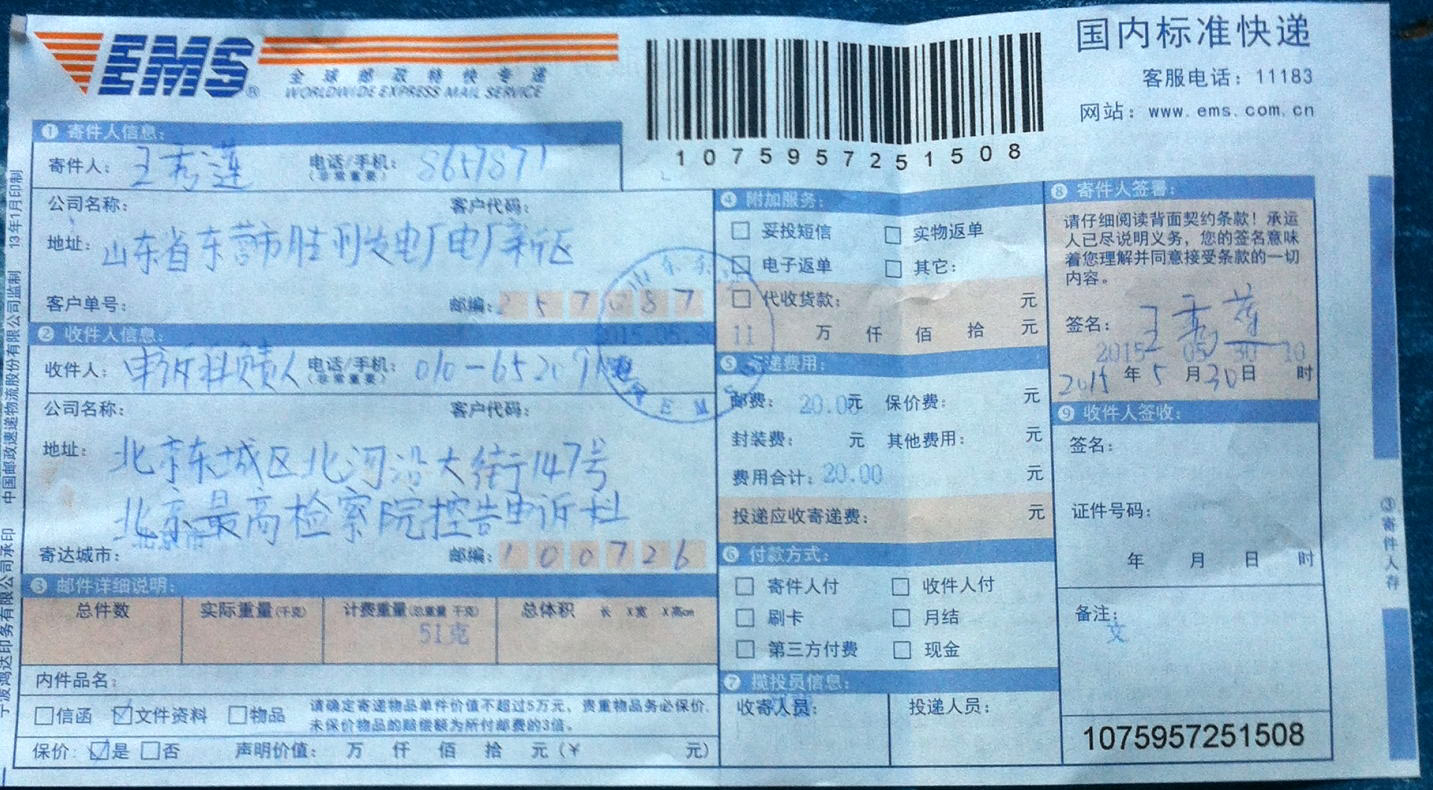 EMS®
全球邮政特快专递
WORLDWIDE EXPRESS MAIL SERVICE
1075957251508
国内标准快递
客服电话：11183
网站：www.ems.com.cn
❶ 寄件人信息：
寄件人：王秀莲 电话/手机：（非常重要） 8657871
公司名称： 客户代码：
地址：山东省东营市胜利发电厂电厂新区
客户单号： 邮编：257087
❷ 收件人信息
收件人：申诉科负责人 电话/手机：（非常重要） 010-65209
公司名称： 客户代码：
地址：北京东城区北河沿大街147号
北京最高检察院控告申诉科
寄达城市：北京市 邮编：100726
❸ 邮件详细说明：
总件数 实际重量（千克） 计费重量（总重量 千克） 总体积 长 X宽 X高cm
51克
内件品名：
信函 文件资料 物品
请确定寄递物品单件价值不超过5万元，贵重物品务必保价，
未保价物品的赔偿额为所付邮费的3倍。
保价：是 否 声明价值： 万 仟 佰 拾 元（¥ 元）
❹ 附加服务：
妥投短信 实物返单
电子返单 其它：
代收货款： 元
万 仟 佰 拾 元
2015.05.30 11
❺ 寄递费用：
邮费：20.00元 保价费： 元
封装费： 元 其他费用： 元
费用合计：20.00 元
投递应收寄递费： 元
❻ 付款方式：
寄件人付 收件人付
刷卡 月结
第三方付费 现金
❼ 揽投员信息：
收寄人员： 投递人员：
❽ 寄件人签署：
请仔细阅读背面契约条款！承运
人已尽说明义务，您的签名意味
着您理解并同意接受条款的一切
内容。
签名：王秀莲
2015 05 30 10
2015年5月30日 时
❾ 收件人签收：
签名：
证件号码：
年 月 日 时
备注：
文
1075957251508
③寄件人存
宁波鸿达印务有限公司承印 中国邮政速递物流股份有限公司监制 13年1月印制